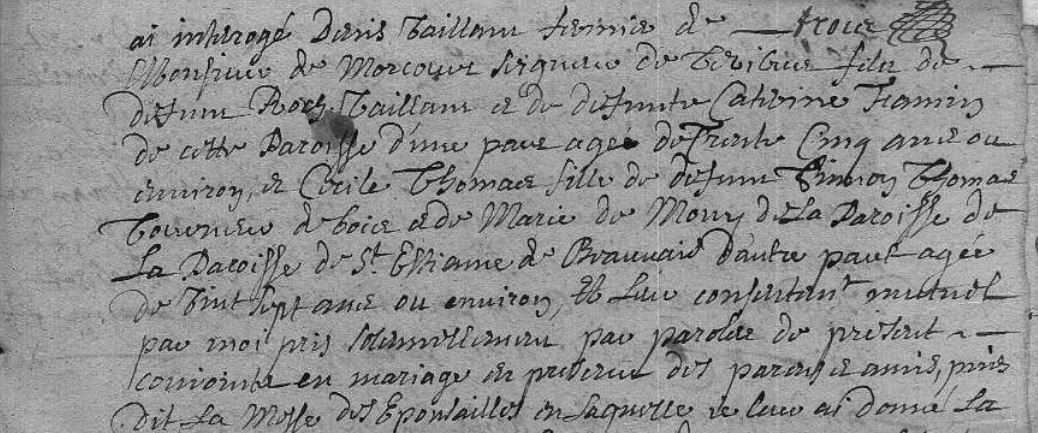 ai interogé Denis Vaillant fermier de
Monsieur de Morcourt seigneur de fils de
defunt Roch Vaillant et de defuncte Catherine
de cette Paroisse d'une part agée de Trente Cinq ans ou
environ, et Cecile Thomas fille de defunt Simon Thomas
Tourneur de bois et de Marie de Mouy de La Paroisse de
La Paroisse de St. Estienne de Beauvais d'autre part agée
de vint sept ans ou environ, Et leur consentement mutuel
par moi pris solemnellement par paroles de present
conioints en mariage en presence des parens et amis, puis
dit La Messe des Epousailles en laquelle je leur ai donné La